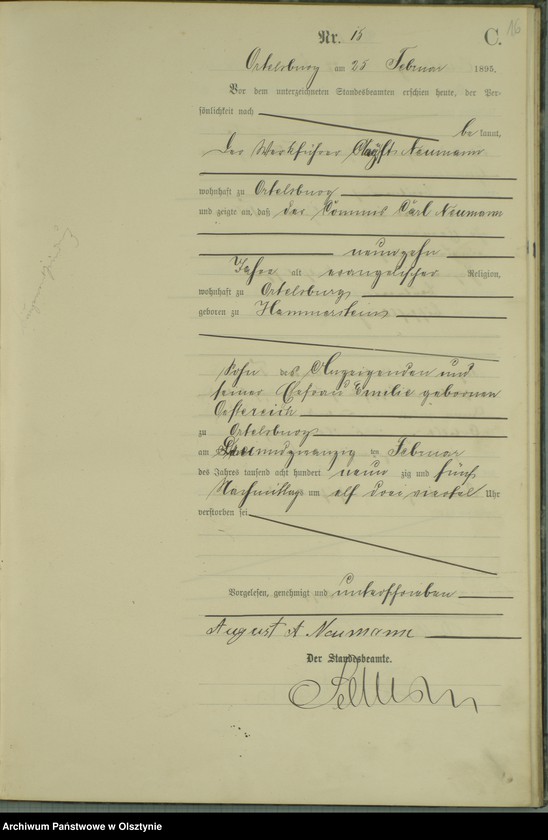 16
Nr. 15 C.
Ortelsburg am 25 Februar 1895.
Vor dem unterzeichneten Standesbeamten erschien heute, der Per-
sönlichkeit nach
be kannt,
der Werkführer August Neumann
wohnhaft zu Ortelsburg
und zeigte an, daß der Commis Carl Neumann
neunzehn
Jahre alt evangelischer Religion,
wohnhaft zu Ortelsburg
geboren zu Hammerstein
Sohn des Anzeigenden und
seiner Ehefrau Emilie geborenen
Oestereich
zu Ortelsburg
am undzwanzig ten Februar
des Jahres tausend acht hundert neun zig und fünf
Nachmittags um elf drei viertel Uhr
verstorben sei
Vorgelesen, genehmigt und unterschrieben
August A Neumann
Der Standesbeamte.
Archiwum Państwowe w Olsztynie